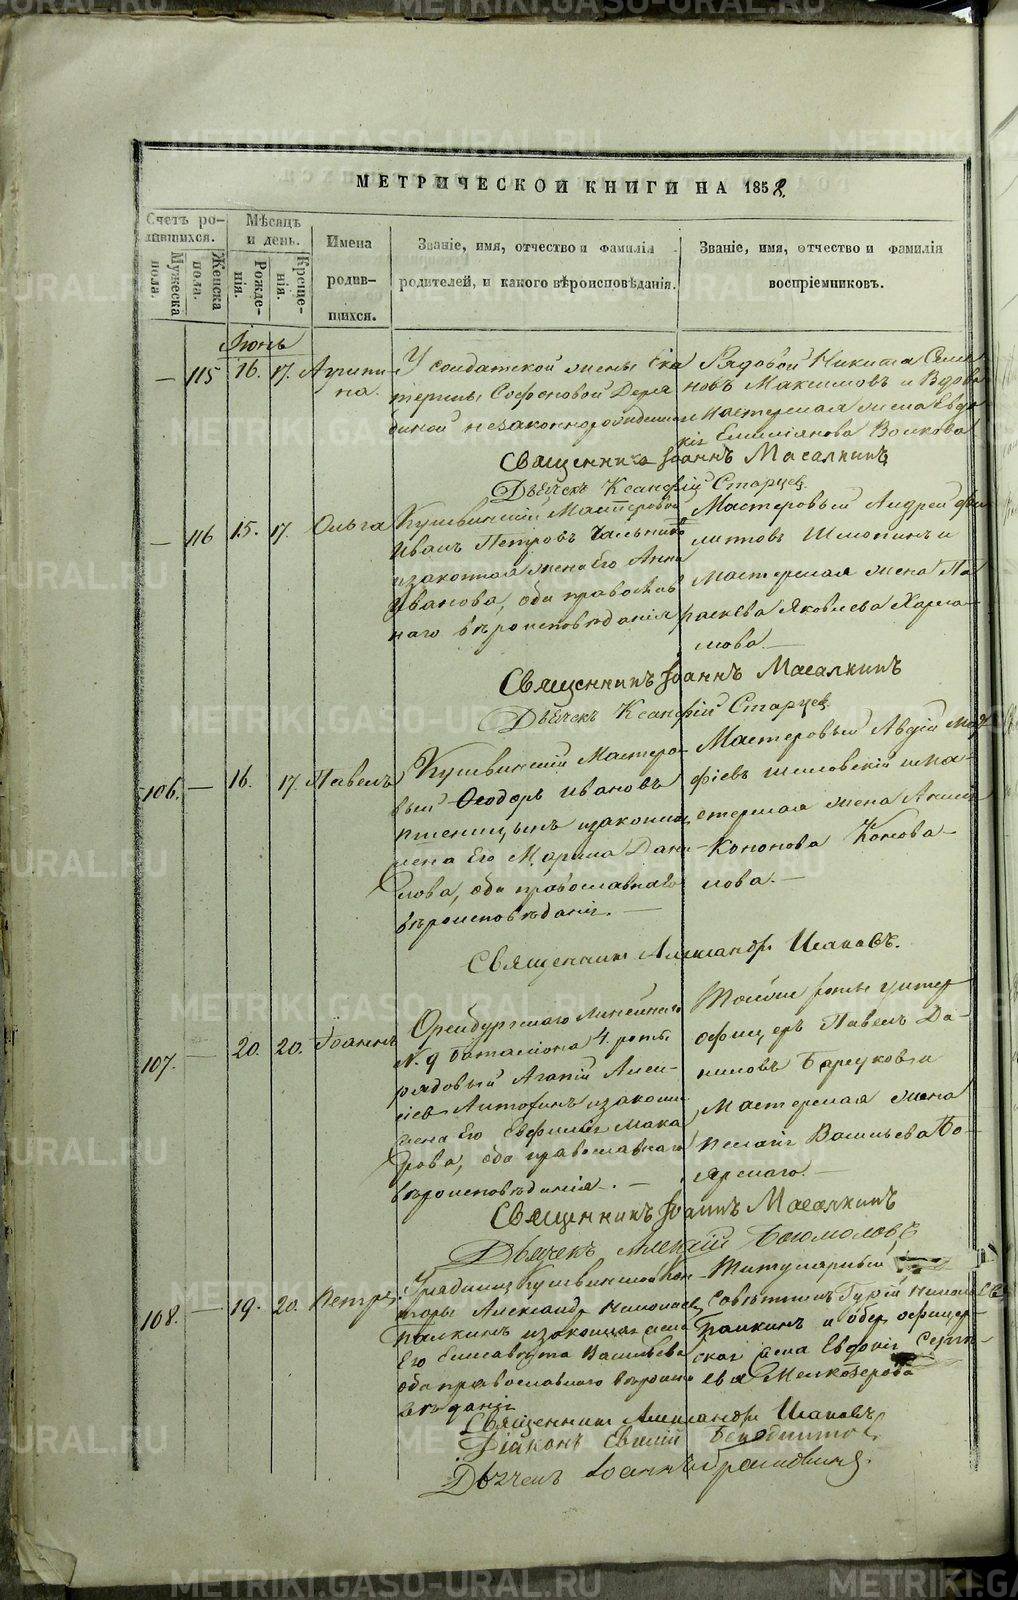 МЕТРИЧЕСКОЙ КНИГИ НА 1858.
Счетъ ро-
дившихся.
Мужеска
пола.
Женска
пола.
Мѣсяцъ
и день.
Рожде-
нія.
Креще-
нія.
Имена
родив-
шихся.
Званіе, имя, отчество и фамилія
родителей, и какого вѣроисповѣданія.
Званіе, имя, отчество и фамилія
воспріемниковъ.
Іюнь
— 115 16. 17. Агрипи-
на.
У солдатской жены Ека
терины Софоновой
незаконнорожденная
Рядовой Никита Семе
новъ Максимовъ и Вдова
Мастерская жена Евдо
кія Емиліянова Волкова
Священникъ Іоаннъ Масалкинъ
Дьячекъ Ксанфій Старцев
— 116 15. 17. Ольга
Кушвинскій Мастеровой
Иванъ Петровъ
изаконная жена Его Анна
Иванова, оба православ
наго вѣроисповѣданія
Мастеровый Андрей Фи
липовъ и
Мастерская жена Па
раскева Яковлева Харла
мова. —
Священникъ Іоаннъ Масалкинъ
Дьячекъ Ксанфій Старцев
106. — 16. 17. Павелъ
Кушвинскій Мастеро-
вый Ѳеодоръ Ивановъ
Пшеницынъ изаконная
жена Его Марина Дани-
лова, оба православнаго
вѣроисповѣданія. —
Мастеровый Авдій
фіевъ иМа-
стерская жена
Кононова Конова-
лова. —
Священникъ Александръ Исаковъ.
107. — 20. 20. Іоаннъ
Оренбургскаго Линейнаго
N. 9 Баталіона 4 роты
рядовый Агапій Алек-
сіевъ изаконн
жена Его Евфимія Мака
рова, оба православнаго
вѣроисповѣданія. —
Тойже роты унтер
офицеръ Павелъ Да-
ниловъ и
Мастерская жена
Пелагія Васильева Бо-
ярскаго. —
Священникъ Іоаннъ Масалкинъ
Дьячекъ Алексій Богомоловъ
108. — 19. 20. Петръ
Кушвинской Кон-
торы Александръ Николаевъ
Палкинъ изаконная жена
Его Елисавета Васильева
оба православнаго вѣроисп
вѣданія
Титулярный
Совѣтникъ Гурій Николаев
Палкинъ и обер офицер-
ская жена Евдокія Серге-
ева Мелкозерова
Священникъ Александръ Исаковъ
Діаконъ
Дьячекъ Іоаннъ